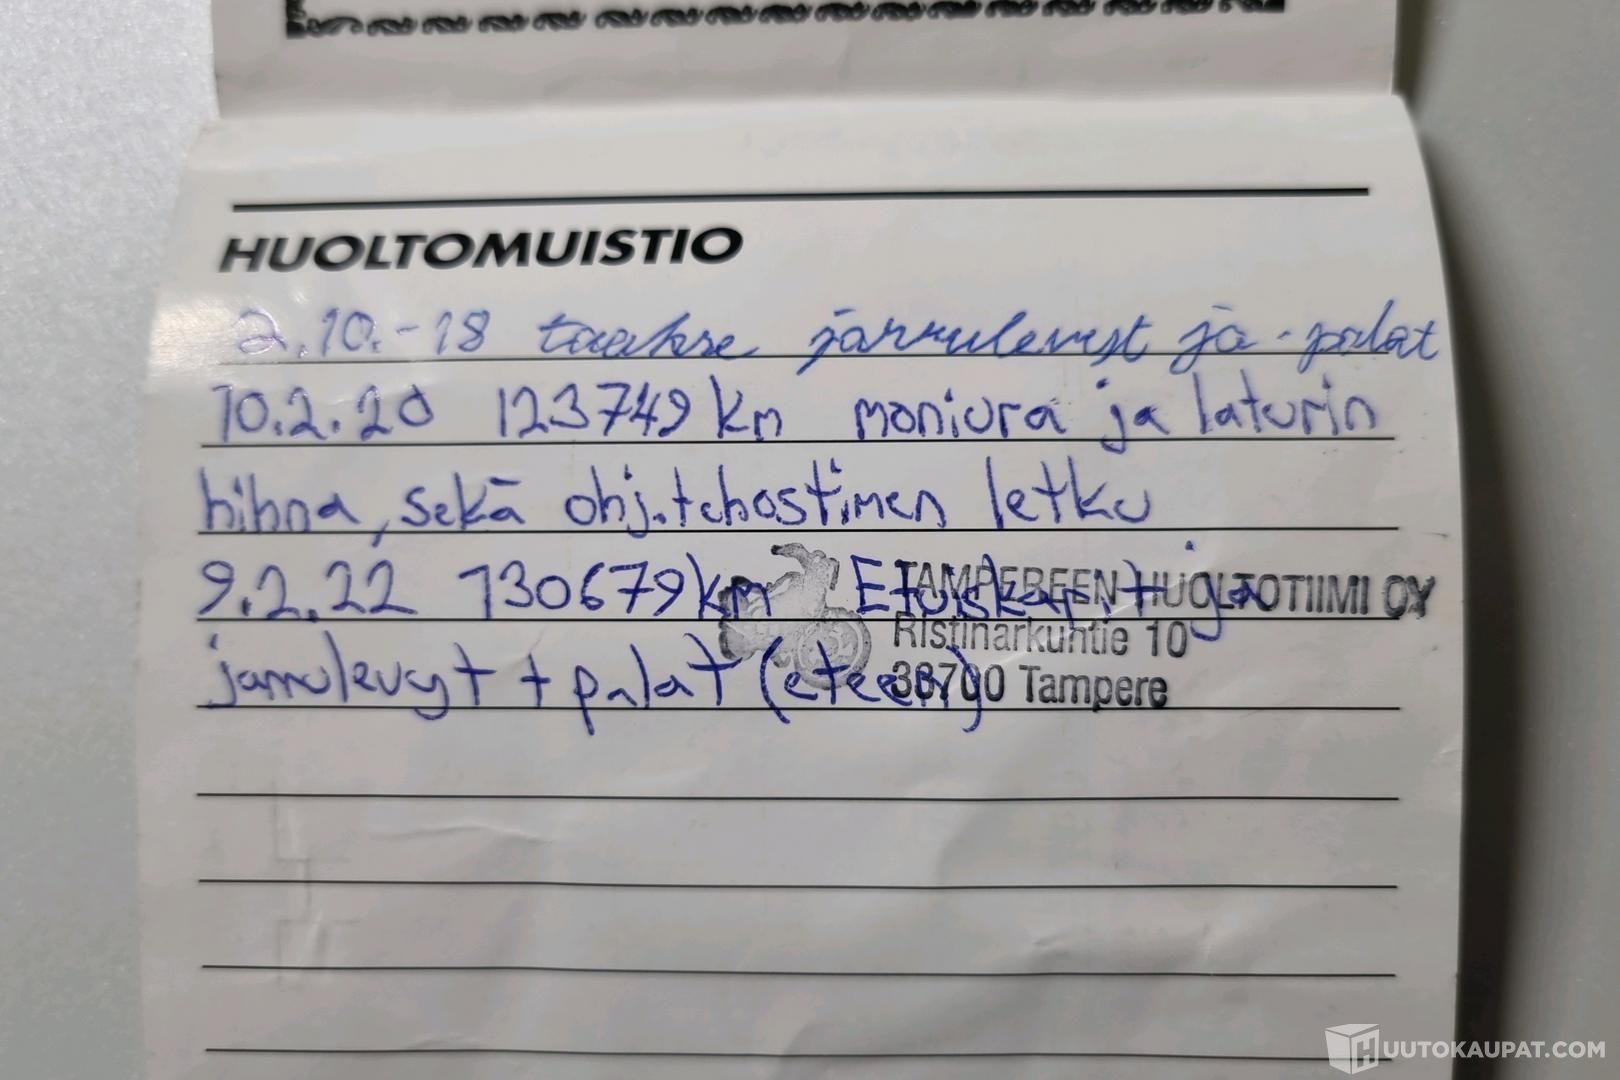 HUOLTOMUISTIO
2.10.-18 taakse jarrulevyt ja -palat
10.2.20 123749 km moniura ja laturin
hihna, sekä ohj.tehostimen letku
9.2.22 130679 km Etuiskar.t ja
TAMPEREEN HUOLTOTIIMI OY
Ristinarkuntie 10
33700 Tampere
jarrulevyt + palat (eteen)
HUUTOKAUPAT.COM